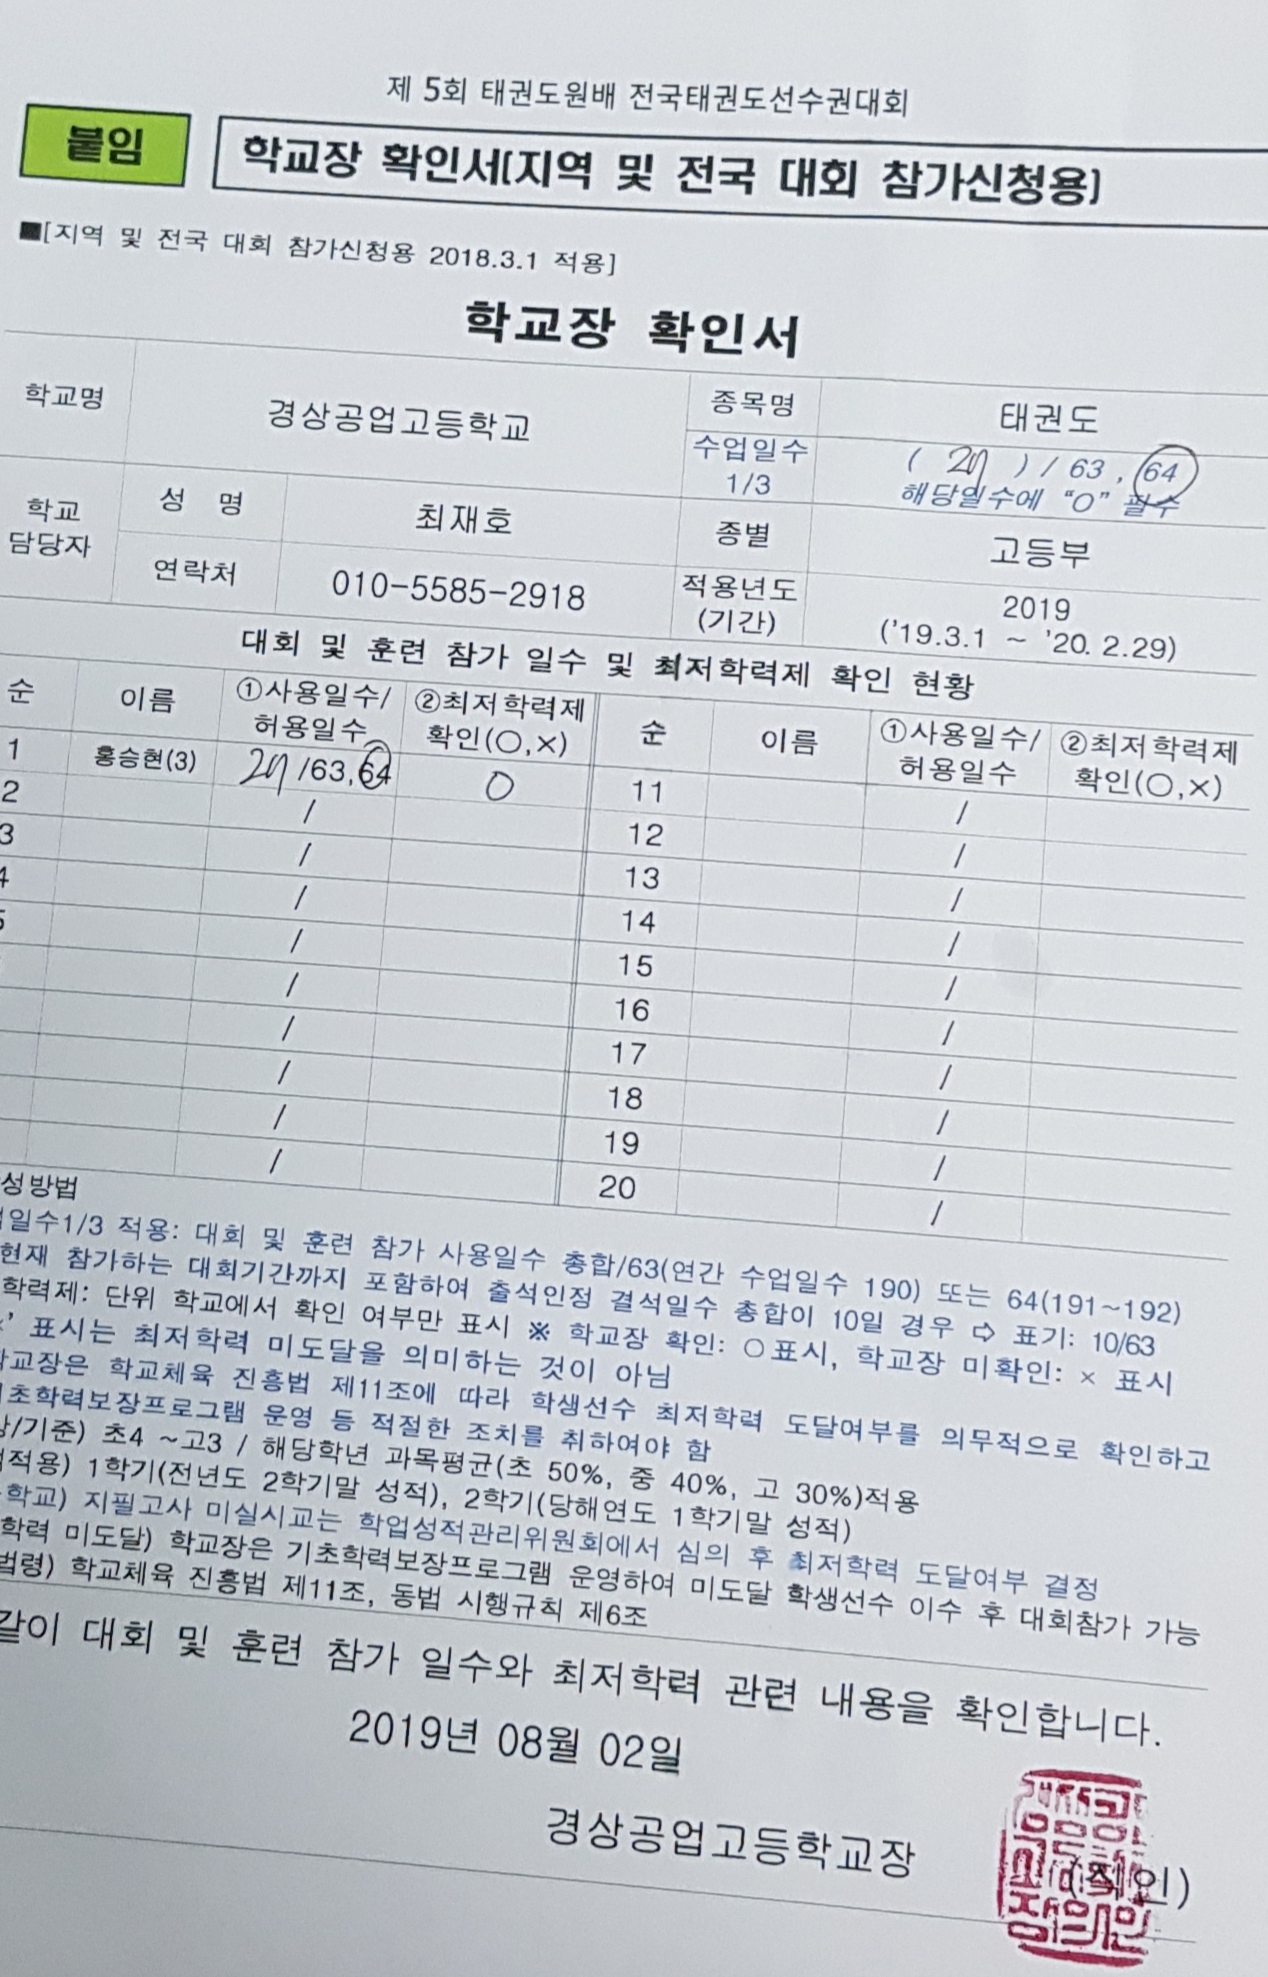 제 5회 태권도원배 전국태권도선수권대회
붙임
학교장 확인서[지역 및 전국 대회 참가신청용]
■[지역 및 전국 대회 참가신청용 2018.3.1 적용]
학교장 확인서
학교명 경상공업고등학교 종목명 태권도
수업일수 1/3 ( ) / 63 , 64
해당일수에 “O” 필수
학교 담당자 성 명 최재호 종별 고등부
연락처 010-5585-2918 적용년도 (기간) 2019
('19.3.1 ~ '20. 2.29)
대회 및 훈련 참가 일수 및 최저학력제 확인 현황
순 이름 ①사용일수/ 허용일수 ②최저학력제 확인(○,×) 순 이름 ①사용일수/ 허용일수 ②최저학력제 확인(○,×)
1 홍승현(3) /63,64 O 11 /
2 / 12 /
3 / 13 /
4 / 14 /
5 / 15 /
/ 16 /
/ 17 /
/ 18 /
/ 19 /
/ 20 /
성방법
일수1/3 적용: 대회 및 훈련 참가 사용일수 총합/63(연간 수업일수 190) 또는 64(191~192)
현재 참가하는 대회기간까지 포함하여 출석인정 결석일수 총합이 10일 경우 ⇨ 표기: 10/63
학력제: 단위 학교에서 확인 여부만 표시 ※ 학교장 확인: ○표시, 학교장 미확인: × 표시
' 표시는 최저학력 미도달을 의미하는 것이 아님
학교장은 학교체육 진흥법 제11조에 따라 학생선수 최저학력 도달여부를 의무적으로 확인하고
기초학력보장프로그램 운영 등 적절한 조치를 취하여야 함
상/기준) 초4 ~고3 / 해당학년 과목평균(초 50%, 중 40%, 고 30%)적용
적용) 1학기(전년도 2학기말 성적), 2학기(당해연도 1학기말 성적)
학교) 지필고사 미실시교는 학업성적관리위원회에서 심의 후 최저학력 도달여부 결정
학력 미도달) 학교장은 기초학력보장프로그램 운영하여 미도달 학생선수 이수 후 대회참가 가능
법령) 학교체육 진흥법 제11조, 동법 시행규칙 제6조
같이 대회 및 훈련 참가 일수와 최저학력 관련 내용을 확인합니다.
2019년 08월 02일
경상공업고등학교장 (직인)